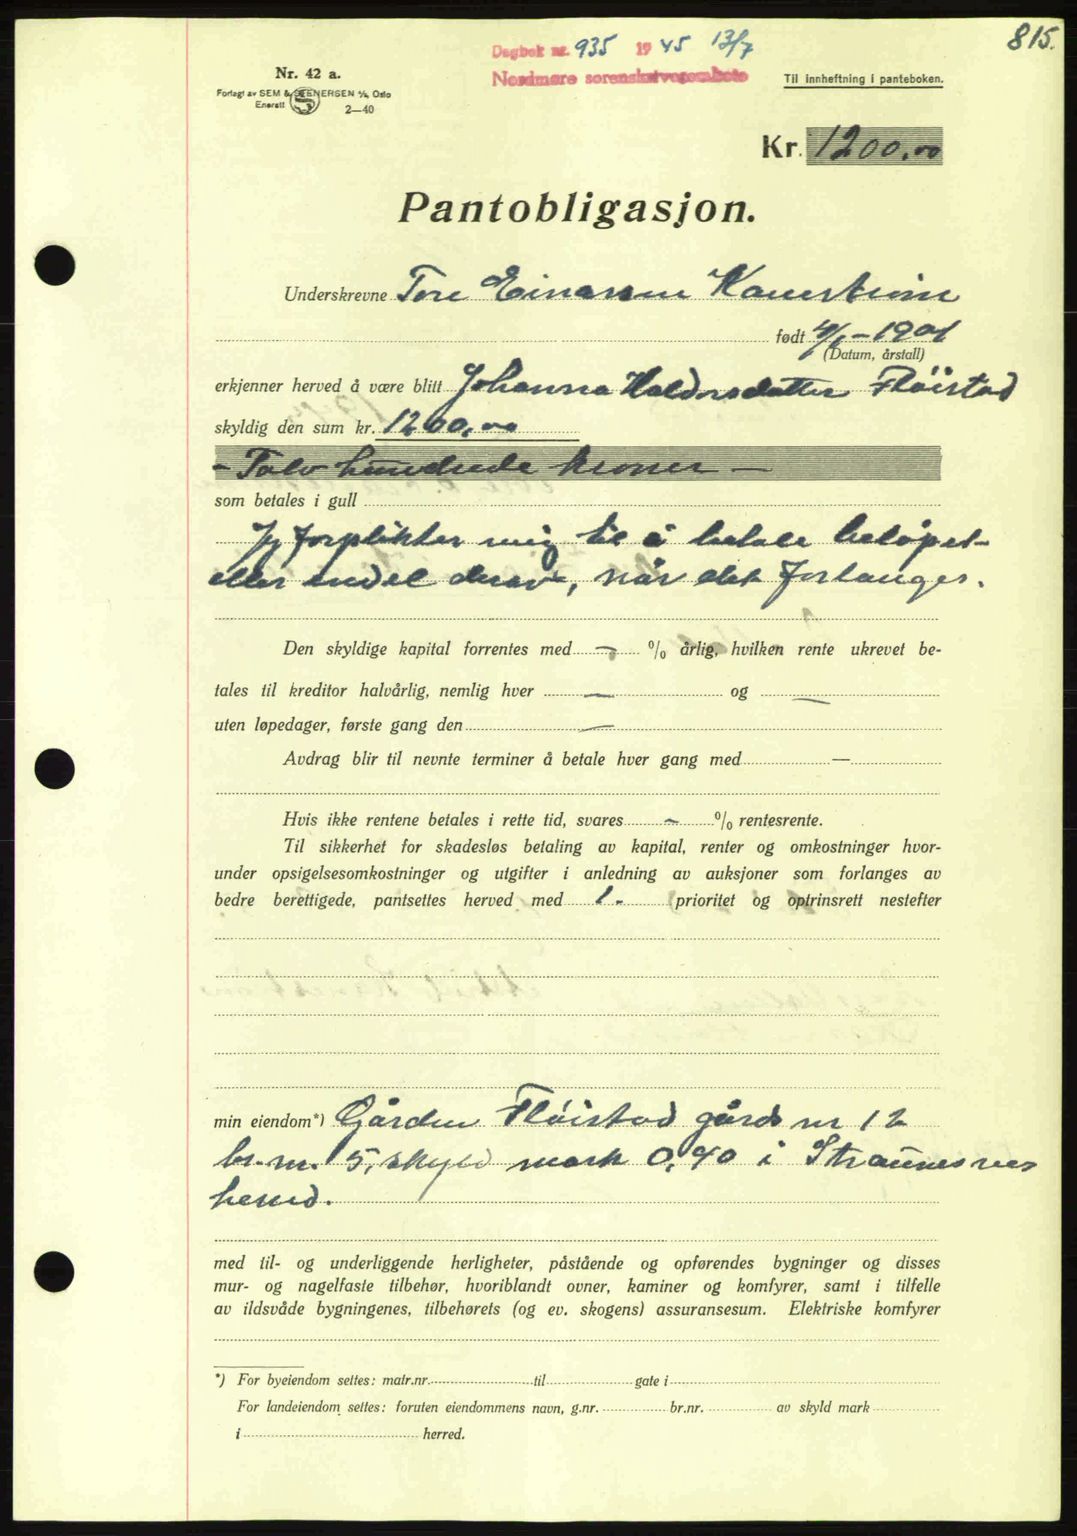 815.
Dagbok nr. 935 1945 13/7
Nordmøre sorenskriverembete
Nr. 42 a.
Til innheftning i panteboken.
Forlagt av SEM & STENERSEN A/S, Oslo
Enerett
S
2—40
Kr. 1200,00
Pantobligasjon.
Underskrevne Tore Einarsen
født 4/1 - 1901
(Datum, årstall)
erkjenner herved å være blitt Johanna Haldorsdatter Fløistad
skyldig den sum kr. 1200,00
- Tolv hundrede kroner -
som betales i gull
Jeg forplikter mig til å betale beløpet
eller endel derav, når det forlanges.
Den skyldige kapital forrentes med — % årlig, hvilken rente ukrevet be-
tales til kreditor halvårlig, nemlig hver — og —
uten løpedager, første gang den —
Avdrag blir til nevnte terminer å betale hver gang med —
Hvis ikke rentene betales i rette tid, svares — % rentesrente.
Til sikkerhet for skadesløs betaling av kapital, renter og omkostninger hvor-
under opsigelsesomkostninger og utgifter i anledning av auksjoner som forlanges av
bedre berettigede, pantsettes herved med 1. prioritet og optrinsrett nestefter
min eiendom*) Gården Fløistad gårds nr 12
br.nr. 5, skyld mark 0,40 i Straumsnes
herred.
med til- og underliggende herligheter, påstående og opførendes bygninger og disses
mur- og nagelfaste tilbehør, hvoriblandt ovner, kaminer og komfyrer, samt i tilfelle
av ildsvåde bygningenes, tilbehørets (og ev. skogens) assuransesum. Elektriske komfyrer
*) For byeiendom settes: matr.nr. til gate i
For landeiendom settes: foruten eiendommens navn, g.nr. br.nr. av skyld mark
i herred.